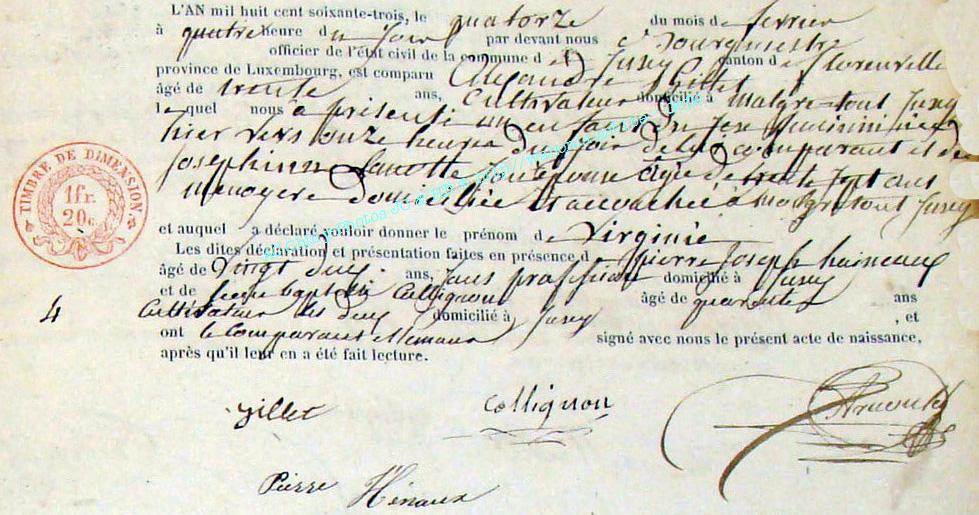 L'AN mil huit cent soixante-trois, le quatorze du mois de fevrier
à quatre heure du soir par devant nous Bourgmestre
officier de l'état civil de la commune de Jusey canton de Florenville
province de Luxembourg, est comparu Alexandre Gillet
âgé de trente ans, Cultivateur domicilié à Malgré-tout Jusey
lequel nous a présenté un enfant du sexe féminin né
hier vers onze heures du soir de lui comparant et de
Josephine Lanotte son épouse âgée de trente sept ans
menagere domiciliée et accouchée à malgré tout Jusey
et auquel a déclaré vouloir donner le prénom de Virginie
Les dites déclaration et présentation faites en présence de pierre Joseph
âgé de Vingt deux ans, sans profession domicilié à Jusey
et de Jean baptiste Collignon âgé de quarante ans
4 Cultivateur les deux domicilié à Jusey, et
ont le comparant et temoins signé avec nous le présent acte de naissance,
après qu'il leur en a été fait lecture.
TIMBRE DE DIMENSION
1fr.
20c.
gillet
Collignon
Pierre Hénaux